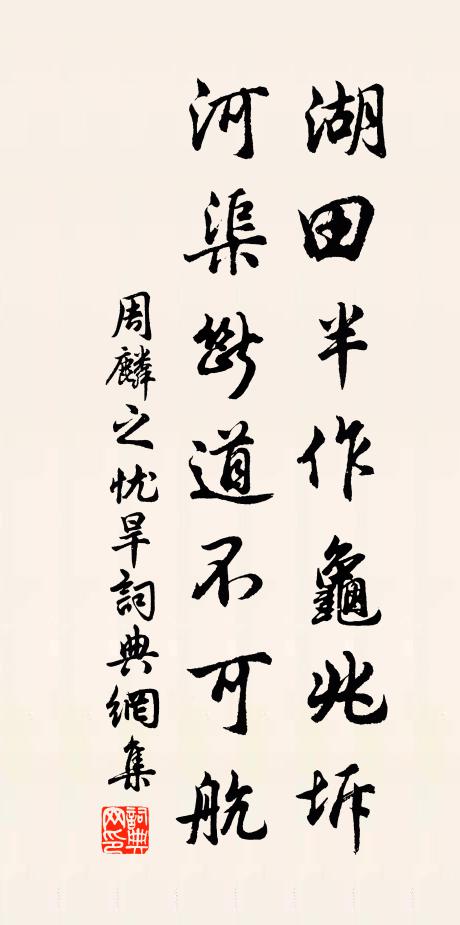 湖田半作龜兆坼
河渠斷道不可航
周麟之忧旱詞典網集
詞典网印